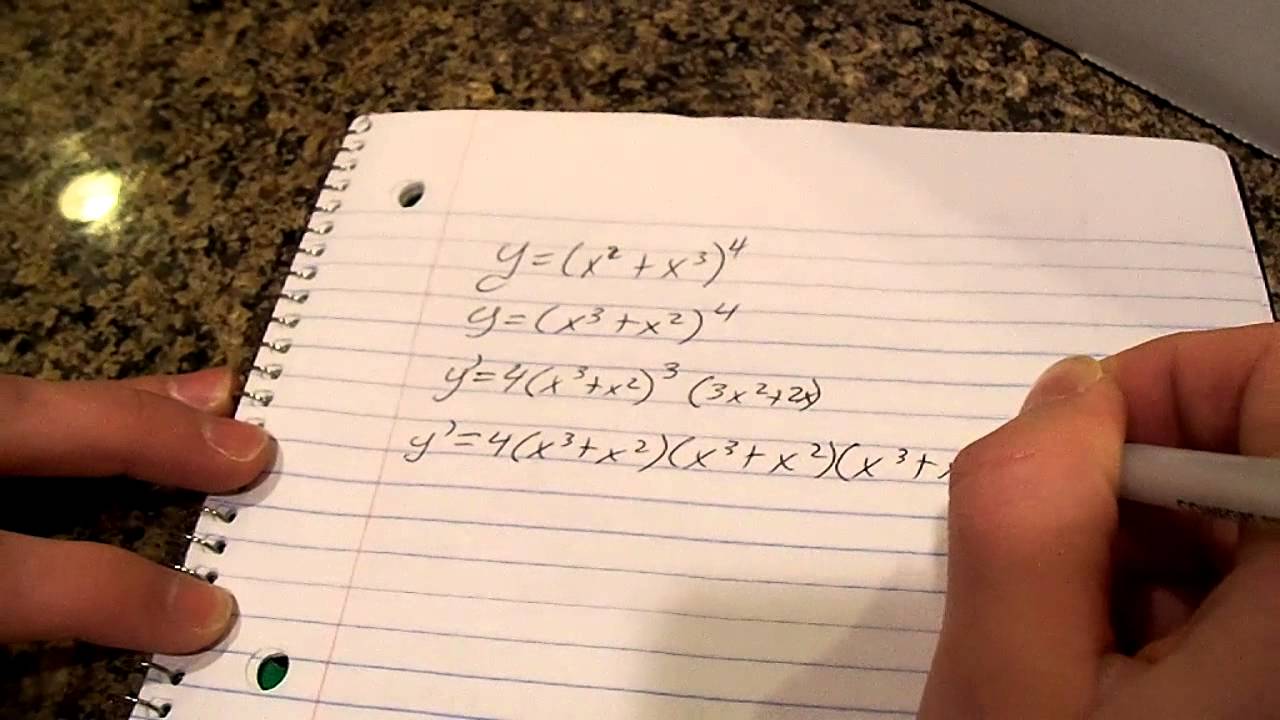 y=(x²+x³)⁴
y=(x³+x²)⁴
y'=4(x³+x²)³ (3x²+2x)
y'=4(x³+x²)(x³+x²)(x³+x